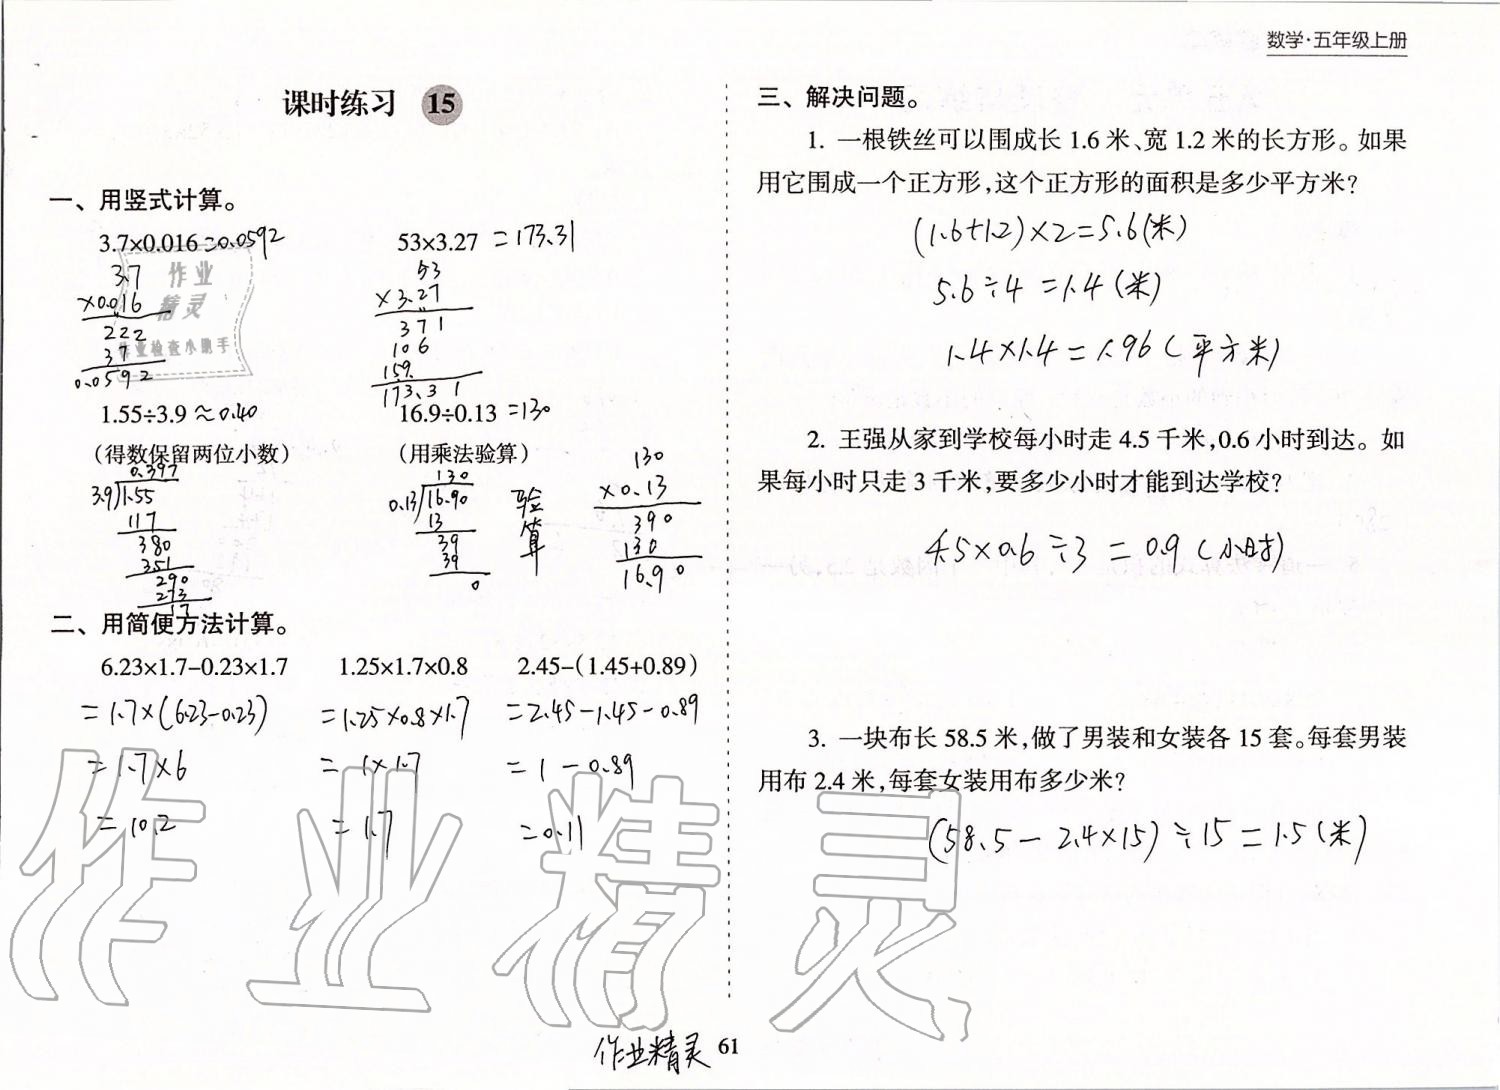 数学·五年级上册
课时练习 15
一、用竖式计算。
3.7×0.016=0.0592
53×3.27=173.31
3.7
×0.016
222
37
0.0592
53
×3.27
371
106
159
173.31
1.55÷3.9≈0.40
16.9÷0.13=130
(得数保留两位小数)
(用乘法验算)
0.397
3.9)1.55
117
380
351
290
273
17
130
0.13)16.90
13
39
39
0
验算
130
×0.13
390
130
16.90
二、用简便方法计算。
6.23×1.7-0.23×1.7
=1.7×(6.23-0.23)
=1.7×6
=10.2
1.25×1.7×0.8
=1.25×0.8×1.7
=1×1.7
=1.7
2.45-(1.45+0.89)
=2.45-1.45-0.89
=1-0.89
=0.11
三、解决问题。
1. 一根铁丝可以围成长 1.6 米、宽 1.2 米的长方形。如果
用它围成一个正方形,这个正方形的面积是多少平方米?
(1.6+1.2)×2=5.6(米)
5.6÷4=1.4(米)
1.4×1.4=1.96(平方米)
2. 王强从家到学校每小时走 4.5 千米,0.6 小时到达。如
果每小时只走 3 千米,要多少小时才能到达学校?
4.5×0.6÷3=0.9(小时)
3. 一块布长 58.5 米,做了男装和女装各 15 套。每套男装
用布 2.4 米,每套女装用布多少米?
(58.5-2.4×15)÷15=1.5(米)
作业
精灵
作业检查小助手
作业精灵
作业精灵
61